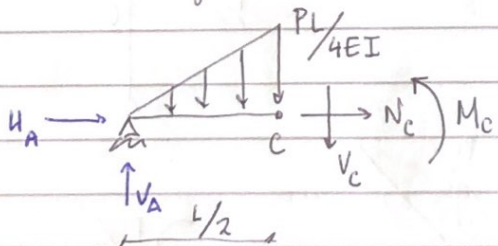 PL/4EI
H_A
N_C
M_C
C
V_C
V_A
L/2